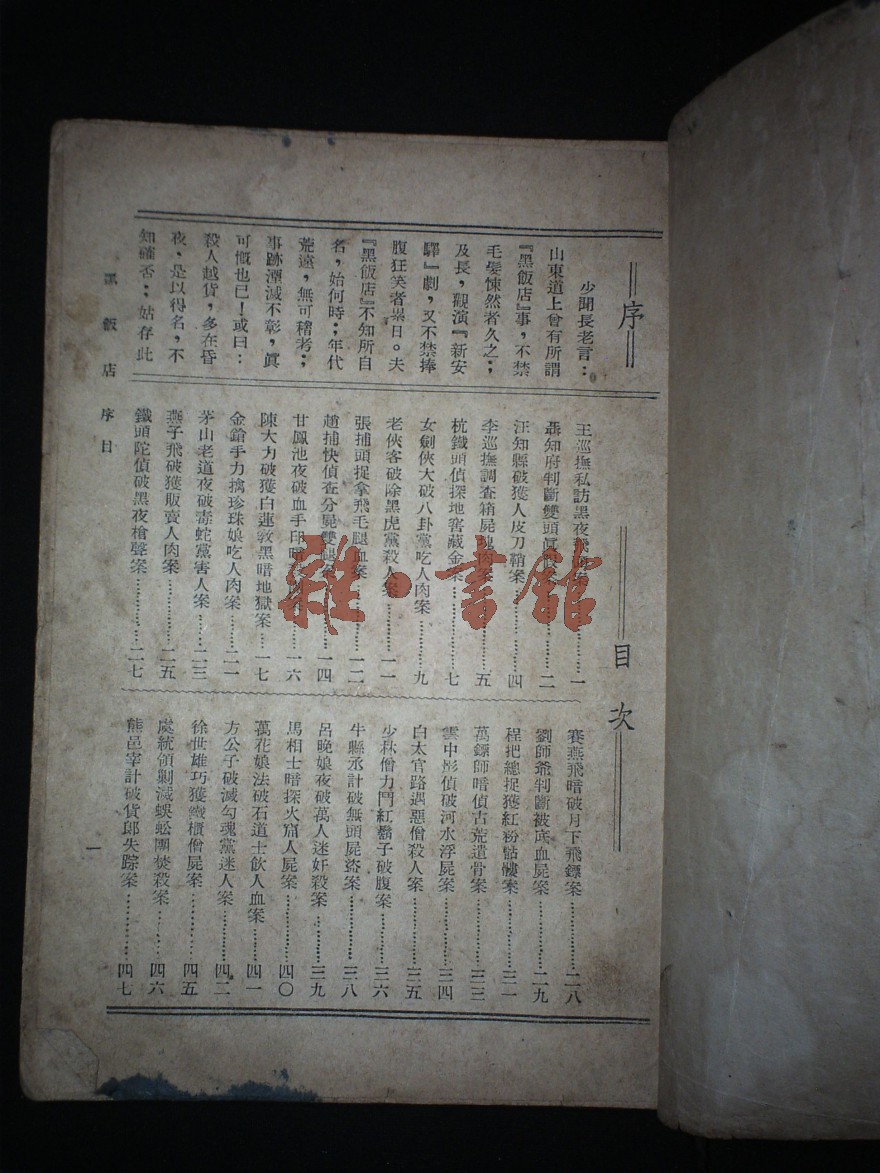 序
少聞長老言：
山東道上曾有所謂
『黑飯店』事，不禁
毛髮悚然者久之；
及長，觀演『新安
驛』劇，又不禁捧
腹狂笑者累日。夫
『黑飯店』不知所自
名，始何時；年代
荒遠，無可稽考；
事跡湮滅不彰，眞
可慨也已！或曰：
殺人越貨，多在昏
夜、是以得名，不
知確否；姑存此
目次
王巡撫私訪黑夜……一
聶知府判斷雙頭……二
汪知縣破獲人皮刀鞘案……四
李巡撫調查箱屍……五
杭鐵頭偵探地窖藏金案……七
女劍俠大破八卦黨吃人肉案……九
老俠客破除黑虎黨殺人案……一一
張捕頭捉拿飛毛腿血案……一二
趙捕快偵查分屍雙……一四
甘鳳池夜破血手印……一六
陳大力破獲白蓮敎黑暗地獄案……一七
金鎗手力擒珍珠娘吃人肉案……二一
茅山老道夜破毒蛇黨害人案……二三
燕子飛破獲販賣人肉案……二五
鐵頭陀偵破黑夜槍聲案……二七
賽燕飛暗破月下飛鏢案……二八
劉師爺判斷被底血屍案……二九
程把總捉獲紅粉骷髏案……三一
萬鏢師暗偵古荒遺骨案……三三
雲中彤偵破河水浮屍案……三四
白太官路遇惡僧殺人案……三五
少林僧力鬥紅鬍子破腹案……三六
牛縣丞計破無頭屍盜案……三八
呂晚娘夜破萬人迷奸殺案……三九
馬相士暗探火窟人屍案……四〇
萬花娘法破石道士飲人血案……四一
方公子破滅勾魂黨迷人案……四二
徐世雄巧獲鐵櫃僧屍案……四五
處統領剿滅蜈蚣團焚殺案……四六
熊邑宰計破貨郎失踪案……四七
黑飯店 序目
一
雜·書館